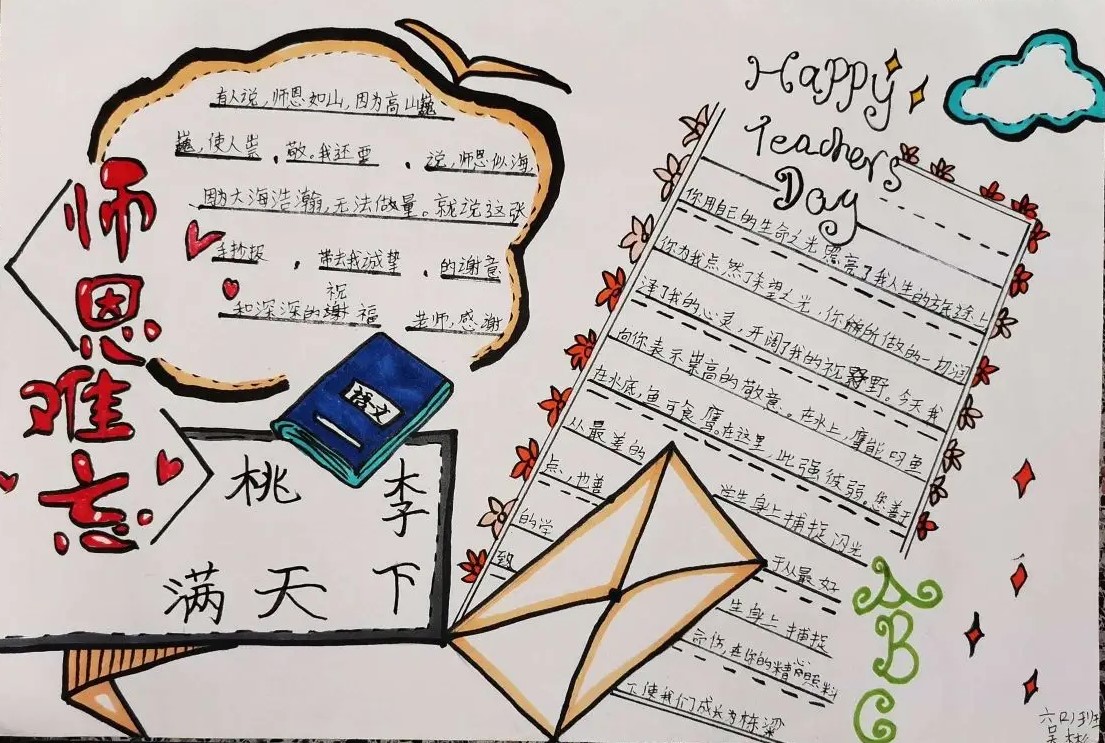 师恩难忘
有人说，师恩如山，因为高山巍
巍，使人崇，敬。我还要，说，师恩似海，
因为大海浩瀚，无法做量。就说这张
手抄报，带去我诚挚，的谢意
祝
和深深的谢福 老师，感谢
语文
桃李
满天下
Happy
Teachers
Day
你用自己的生命之光照亮了我人生的旅途上
你为我点，然了希望之光，你
所做的一切润
泽了我的心灵，开阔了我的视野。今天我
向你表示崇高的敬意。在水上，鹰能叼鱼
在水底，鱼可食鹰。在这里，此强彼弱。您善于
从最差的 学生身上捕捉闪光
点，也善 于从最好
的学 生身上捕捉
致 伤，在你的精心照料
下使我们成长为栋梁
A
B
C